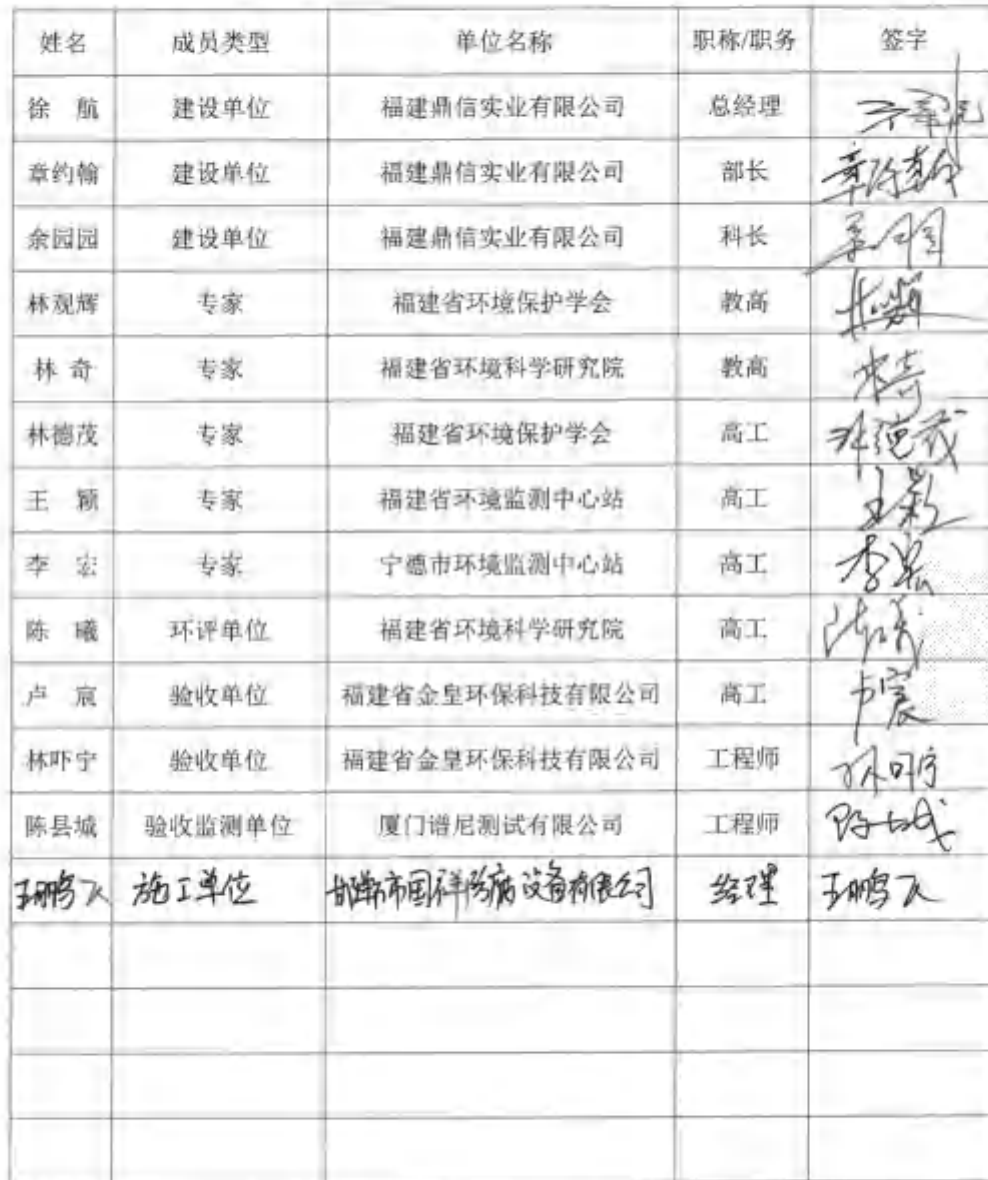 姓名 成员类型 单位名称 职称/职务 签字
徐 航 建设单位 福建鼎信实业有限公司 总经理
章约翰 建设单位 福建鼎信实业有限公司 部长 章约翰
余园园 建设单位 福建鼎信实业有限公司 科长
林观辉 专家 福建省环境保护学会 教高
林 奇 专家 福建省环境科学研究院 教高 林奇
林德茂 专家 福建省环境保护学会 高工 林德茂
王 颖 专家 福建省环境监测中心站 高工 王颖
李 宏 专家 宁德市环境监测中心站 高工 李宏
陈 曦 环评单位 福建省环境科学研究院 高工 陈曦
卢 宸 验收单位 福建省金皇环保科技有限公司 高工 卢宸
林吓宁 验收单位 福建省金皇环保科技有限公司 工程师 林吓宁
陈县城 验收监测单位 厦门谱尼测试有限公司 工程师 陈县城
王鹏飞 施工单位 邯郸市国祥 设备有限公司 经理 王鹏飞